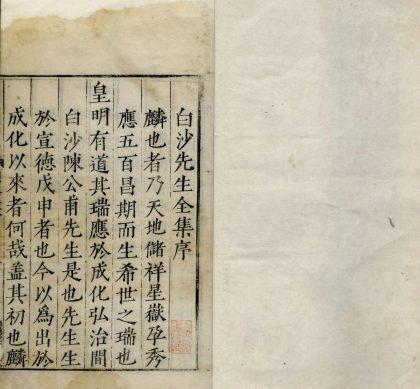 白沙先生全集序
麟也者乃天地儲祥星嶽孕秀
應五百昌期而生希世之瑞也
皇明有道其瑞應於成化弘治間
白沙陳公甫先生是也先生生
於宣德戊申者也今以為出於
成化以來者何哉盖其初也麟